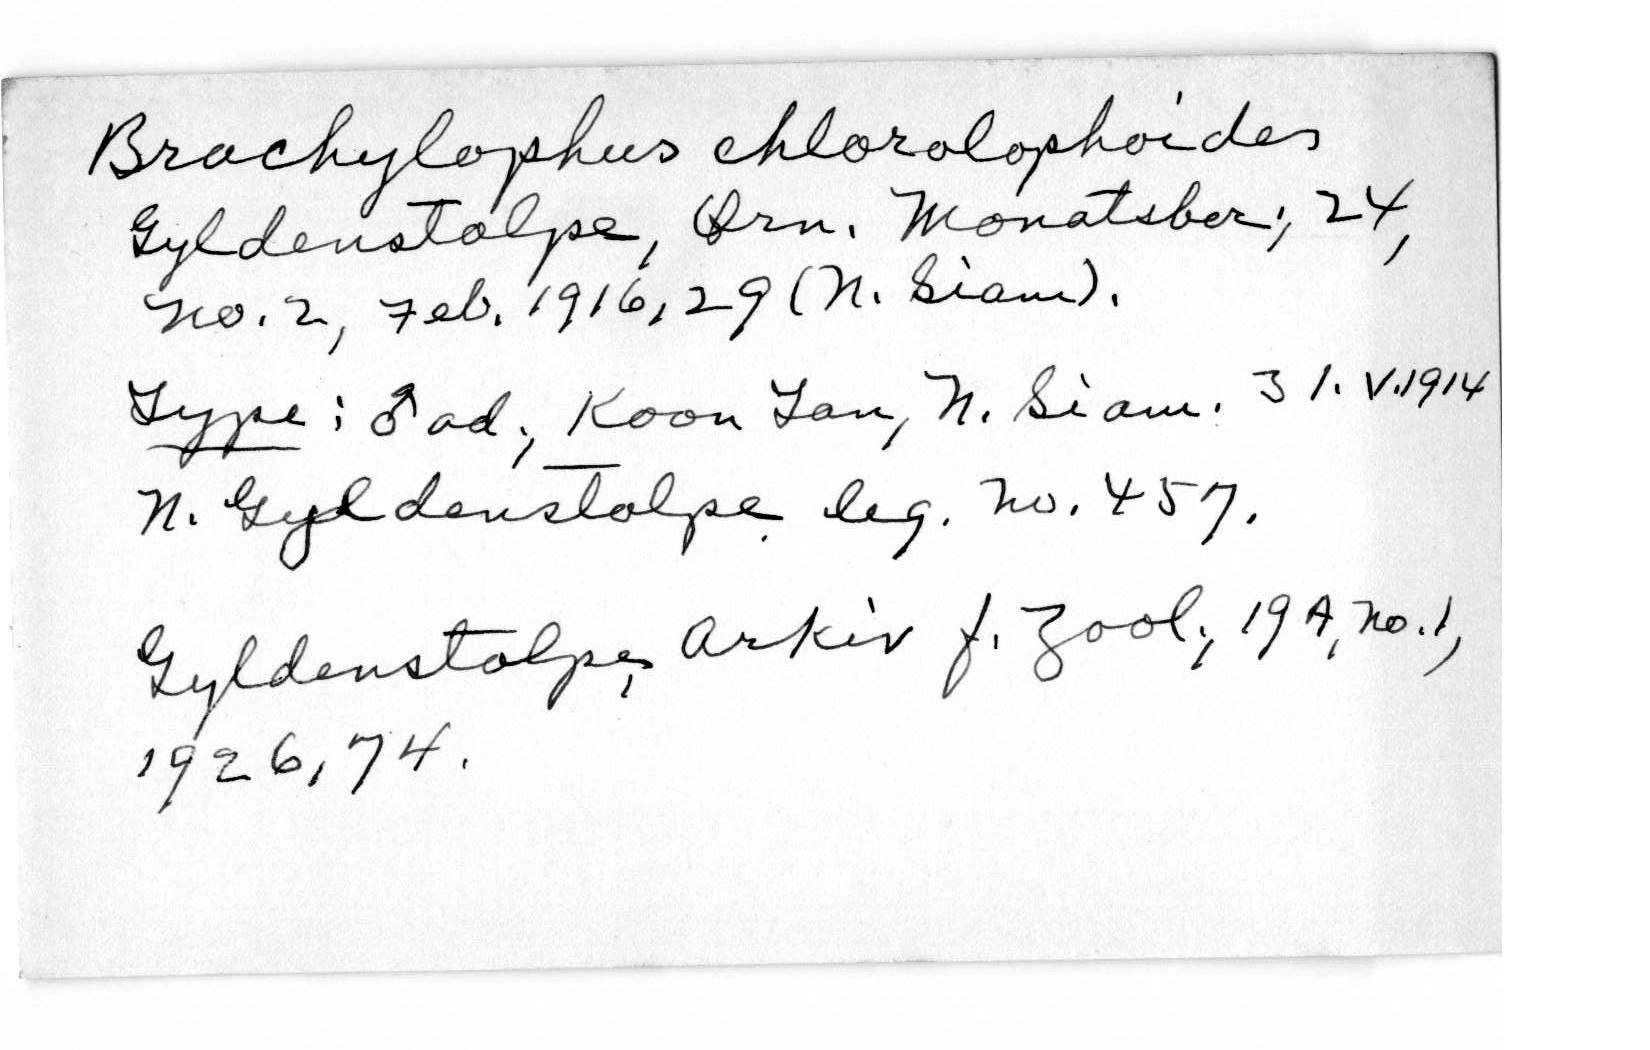 Brachylophus chlorolophoides
Gyldenstolpe, Orn. Monatsber., 24,
no. 2, Feb. 1916, 29 (N. Siam).
Type: ♂ ad., Koon Tan, N. Siam. 31.V.1914
N. Gyldenstolpe leg. no. 457.
Gyldenstolpe, Arkiv f. Zool., 19A, no. 1,
1926, 74.